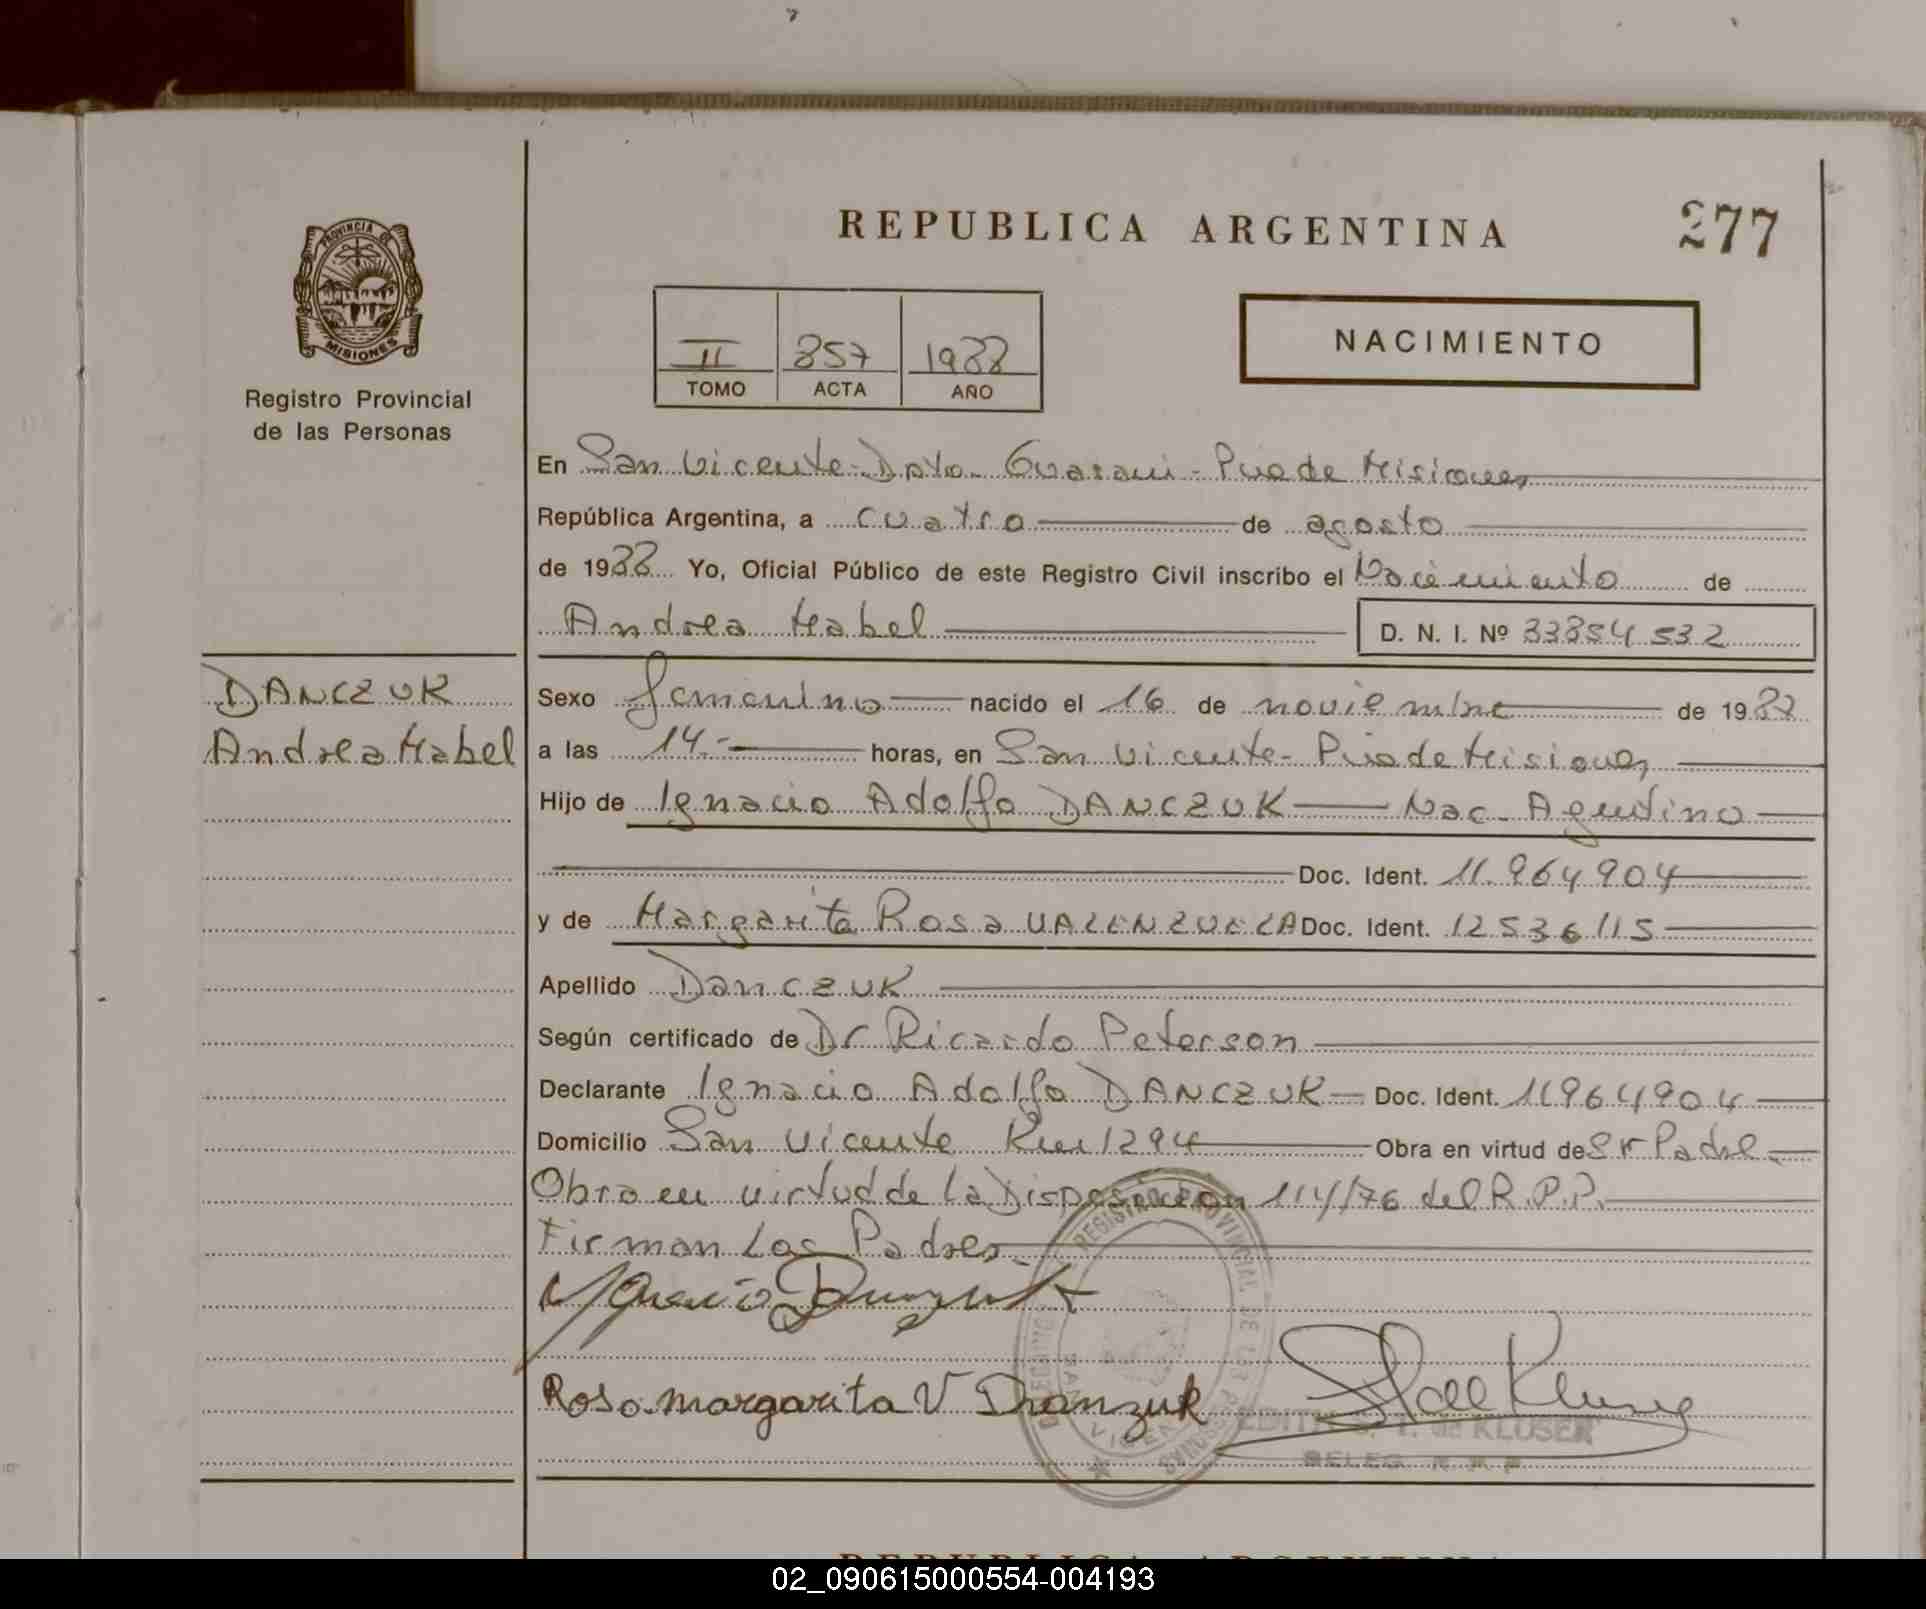 REPUBLICA ARGENTINA
277
PROVINCIA DE
MISIONES
Registro Provincial
de las Personas
II 857 1988
TOMO ACTA AÑO
NACIMIENTO
En San Vicente - Dpto. Guaraní - Pvia de Misiones
República Argentina, a cuatro de agosto
de 1988 Yo, Oficial Público de este Registro Civil inscribo el Nacimiento de
Andrea Mabel D. N. I. Nº 33854532
DANCZUK
Andrea Mabel
Sexo femenino nacido el 16 de noviembre de 1987
a las 14.- horas, en San Vicente - Pvia de Misiones
Hijo de Ignacio Adolfo DANCZUK Nac. Agentino
Doc. Ident. 11.964904
y de Margarita Rosa VALENZUELA Doc. Ident. 12536115
Apellido Danczuk
Según certificado de Dr Ricardo Peterson
Declarante Ignacio Adolfo DANCZUK Doc. Ident. 11964904
Domicilio San Vicente Km 1294 Obra en virtud de Sr Padre
Obra en virtud de la Disposicion 114/76 del R.P.P.
Firman Los Padres
Ignacio
Rosa margarita V Dranzuk
REGISTRO PROVINCIAL DE LAS PERSONAS
SAN VICENTE
EDITH S. T. de KLUSER
DELEG. R. P. P.
REPUBLICA ARGENTINA
02_090615000554-004193